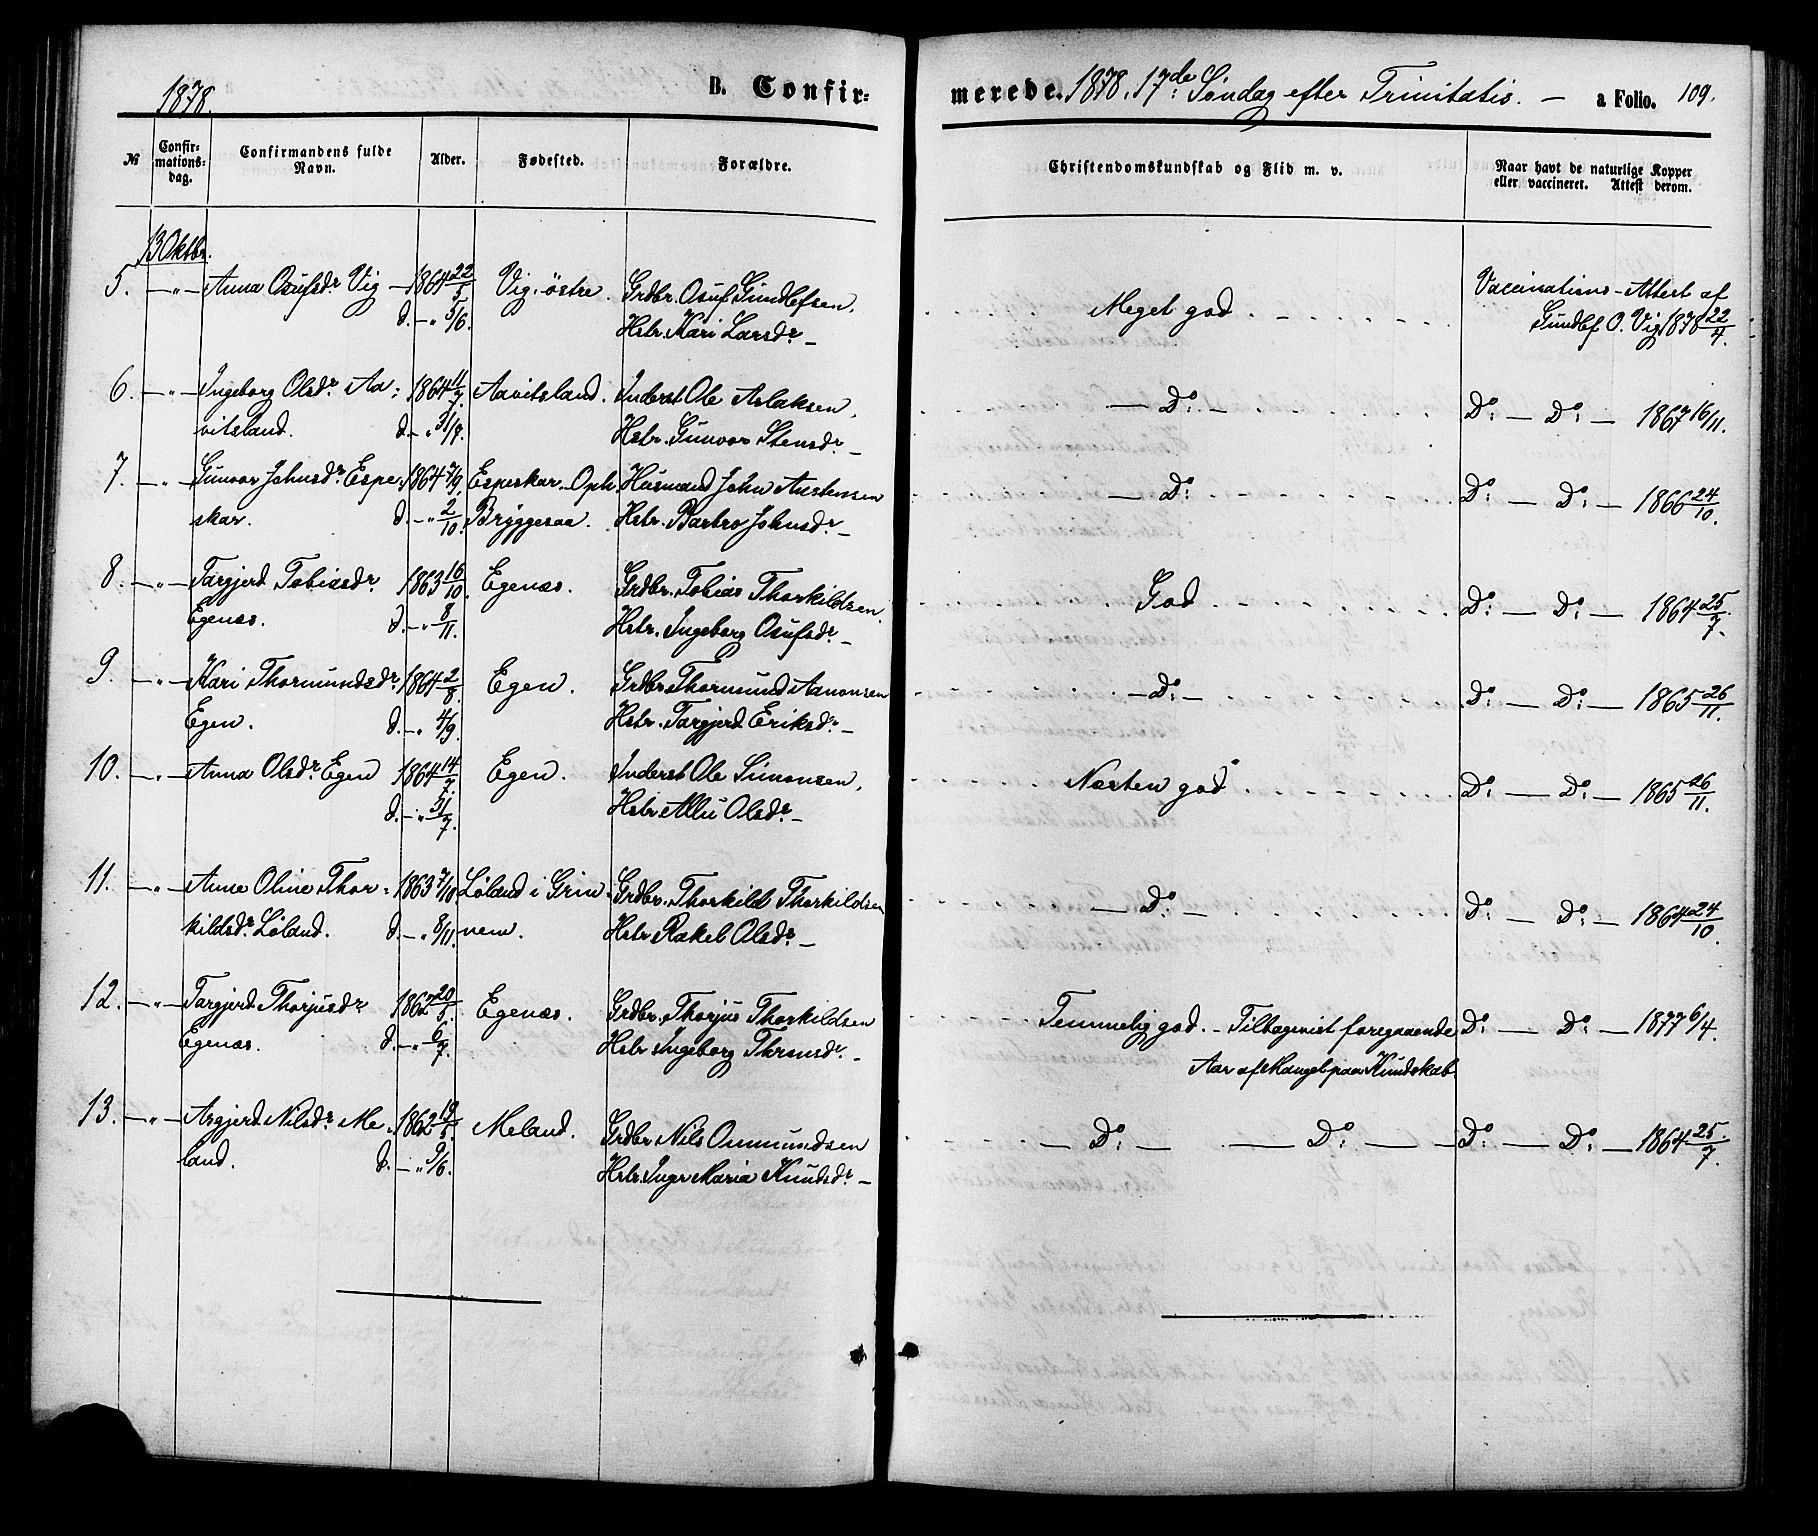 1878.
B. Confir-
merede. 1878. 17de Søndag efter Trinitatis. —
a Folio. 109.
№
Confir-
mations-
dag.
Confirmandens fulde
Navn.
Alder.
Fødested.
Forældre.
Christendomskundskab og Flid m. v.
Naar havt de naturlige Kopper
eller vaccineret. Attest derom.
13 Oktbr.
5. — " — Anna Osufsdr Vig — 1864 22/5 Vig, østre. Grdbr. Osuf Gundlefsen, Meget god Vaccinations-Attest af
d. — " 5/6. Hstr. Kari Larsdr — Gundlef O. Vig 1878 22/4.
6. — " — Ingeborg Olsdr Aa- 1864 11/7. Aavitsland. Inderst Ole Aslaksen, — Do: — Do: — Do: — 1867 16/11.
vitsland. d. — " 31/7. Hstr. Gunvor Stensdr —
7. — " Gunvor Johnsdr Espe- 1864 7/9. Espeskar. Oph. Husmand John Austensen — Do: Do: — Do: — 1866 24/10.
skar. d. — " 2/10. Bryggesaa. Hstr. Barbro Johnsdr —
8. — " — Targjerd Tobiasdr 1863 16/10. Egenæs. Grdbr. Tobias Thorkildsen. God Do: — Do: — 1864 25/7.
Egenæs. d. — " 8/11. Hstr. Ingeborg Osufsdr —
9. — " — Kari Thormundsdr 1864 2/8. Egen. Grdbr. Thormund Aanonsen — Do: — Do: — Do: — 1865 26/11.
Egen. d. — " 4/9. Hstr. Targjerd Eriksdr —
10. — " — Anna Olsdr Egen 1864 14/7. Egen. Inderst Ole Simonsen, Næsten god Do: — Do: — 1865 26/11.
d. — " 31/7. Hstr. Olsdr —
11. — " — Anne Oline Thor- 1863 7/10 Løland i Grin- Grdbr. Thorkild Thorkildsen — Do: — Do: — Do: — 1864 24/10.
kildsdr Løland. d. — " 8/11. nem. Hstr. Rakel Olsdr —
12. — " — Targjerd Thorjusdr 1862 20/5. Egenæs. Grdbr. Thorjus Thorkildsen Temmelig god. — Tilbagevist foregaaende Do: — Do: — 1877 6/4.
Egenæs. d. — " 6/7. Hstr. Ingeborg Thronsdr. — Aar af Mangel paa Kundskab
13. — " — Asgjerd Nilsdr Me- 1862 19/5. Meland. Grdbr. Nils Onmundsen — Do: — Do: — Do: — Do: — 1864 25/7.
land. d. — " 9/6. Hstr. Inger Maria Knudsdr —